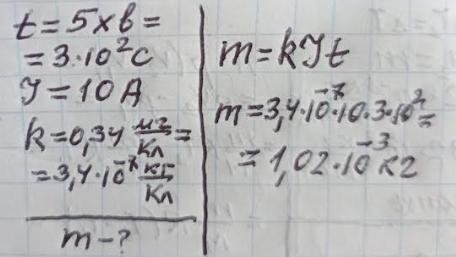 t = 5 хв =
= 3·10² с
I = 10 А
k = 0,34 мг/Кл =
= 3,4·10⁻⁷ кг/Кл
m - ?
m = kIt
m = 3,4·10⁻⁷·10·3·10² =
= 1,02·10⁻³ кг